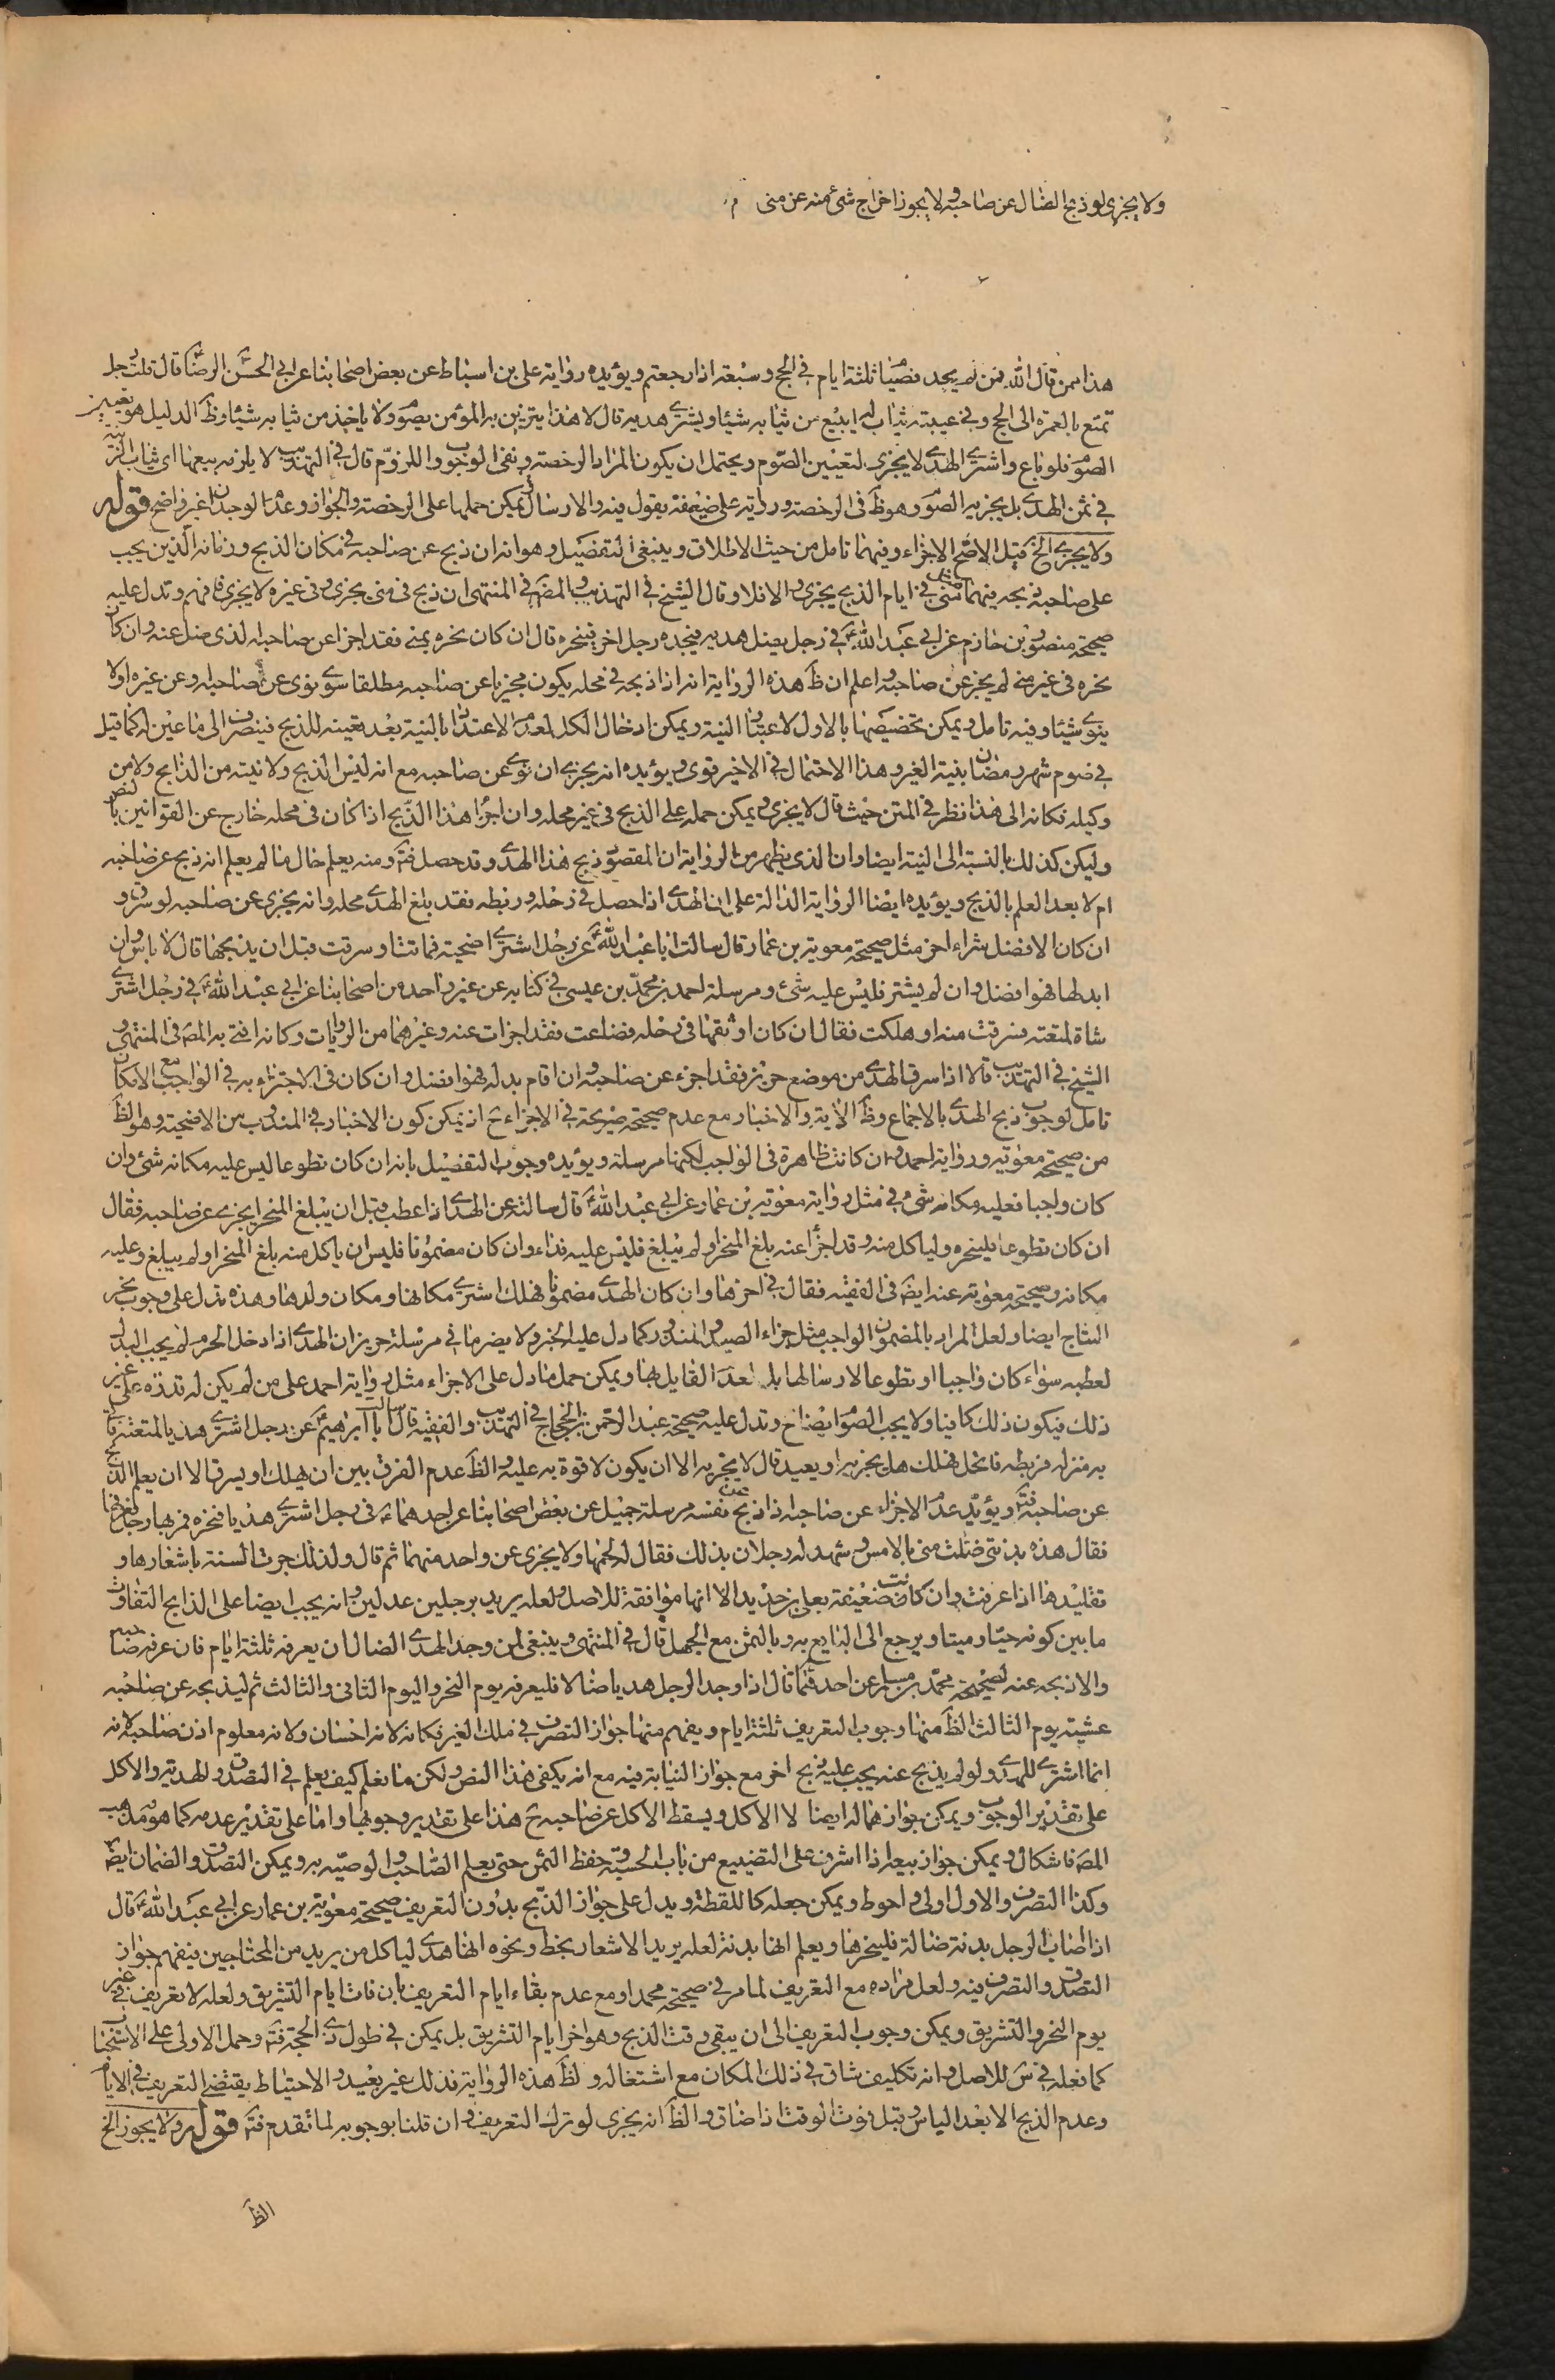 ولا يجزى لو ذبح الضال عن صاحبه ولا يجوز اخراج شئ منه عن منى م
هذا ممن قال الله فمن لم يجد فصيام ثلثة ايام في الحج وسبعة اذا رجعتم ويؤيده رواية علي بن اسباط عن بعض اصحابنا عن ابي الحسن الرضا قال قلت رجل
تمتع بالعمرة الى الحج وفي عيبته ثياب له ايبيع من ثيابه شيئا ويشترى هديه قال لا هذا يتزين به المؤمن يصوم ولا ياخذ من ثيابه شيئا وظ الدليل هو تعيين
الصوم فلو باع واشترى الهدى لا يجزى لتعيين الصوم ويحتمل ان يكون المراد الرخصة ونفى الوجوب واللزوم قال في التهذيب لا يلزمه بيعها اى ثياب الزينة
في ثمن الهدى بل يجزيه الصوم وهو ظ في الرخصة ورواية على ضعفه بقول فيه والارسال يمكن حملها على الرخصة والجواز وعدم الوجدان غير واضح قوله
ولا يجزى الخ قيل الاصح الاجزاء وفيهما تامل من حيث الاطلاق وينبغى التفضيل وهو انه ان ذبح عن صاحبه في مكان الذبح وزمانه الذين يجب
على صاحبه ذبحه فيهما منى في ايام الذبح يجزى والا فلا وقال الشيخ في التهذيب والمص في المنتهى ان ذبح في منى يجزى وفى غيره لا يجزى فافهم وتدل عليه
صحيحة منصور بن حازم عن ابي عبد الله ع في رجل يضل هديه فيجده رجل اخر فينحره قال ان كان نحره بمنى فقد اجزا عن صاحبه الذى ضل عنه وان كان
نحره في غير منى لم يجز عن صاحبه واعلم ان ظ هذه الرواية انه اذا ذبحه في محله يكون مجزيا عن صاحبه مطلقا سوى نوى عن صاحبه او عن غيره او لا
ينوى شيئا وفيه تامل ويمكن تخصيصها بالاول لاعتبار النية ويمكن ادخال الكل لعدم الاعتداد بالنية بعد تعينه للذبح فينصرف الى ما عين له كما قيل
في صوم شهر رمضان بنية الغير وهذا الاحتمال في الاخير قوى ويؤيده انه يجزى ان نوى عن صاحبه مع انه ليس الذبح ولا نيته من الذابح ولا من
وكيله فكانه الى هذا نظر في المتن حيث قال لا يجزى ويمكن حمله على الذبح في غير محله وان اجزا هذا الذبح اذا كان في محله خارج عن القوانين بالنص
وليكن كذلك بالنسبة الى النية ايضا وان الذى يظهر من الرواية ان المقصود ذبح هذا الهدى وقد حصل فت ومنه يعلم حال ما لم يعلم انه ذبح عن صاحبه
ام لا بعد العلم بالذبح ويؤيده ايضا الرواية الدالة على ان الهدى اذا حصل في رحله وربطه فقد بلغ الهدى محله وانه يجزى عن صاحبه لو سرق و
ان كان الافضل شراء اخر مثل صحيحة معوية بن عمار قال سالت ابا عبد الله ع عن رجل اشترى اضحية فماتت او سرقت قبل ان يذبحها قال لا باس وان
ابدلها فهو افضل وان لم يشتر فليس عليه شئ ومرسلة احمد بن محمد بن عيسى في كتابه عن غير واحد من اصحابنا عن ابي عبد الله ع في رجل اشترى
شاة لمتعته فسرقت منه او هلكت فقال ان كان اوثقها في رحله فضاعت فقد اجزات عنه وغيرهما من الروايات وكانه افتى به المص في المنتهى و
الشيخ في التهذيب قالا اذا سرق الهدى من موضع حريز فقد اجزء عن صاحبه وان اقام بدله فهو افضل وان كان في الاجتزاء به في الواجب مع الامكان
تامل لوجوب ذبح الهدى بالاجماع وظ الاية والاخبار مع عدم صحيحة صريحة في الاجزاء ح اذ يمكن كون الاخبار في المندوب من الاضحية وهو الظ
من صحيحة معوية ورواية احمد وان كانت ظاهرة في الواجب لكنها مرسلة ويؤيده وجوب التفضيل بانه ان كان تطوعا ليس عليه مكانه شئ وان
كان واجبا فعليه مكانه شئ في مثل رواية معوية بن عمار عن ابي عبد الله ع قال سالته عن الهدى اذا عطب قبل ان يبلغ المنحر ايجزى عن صاحبه فقال
ان كان تطوعا فلينحره ولياكل منه وقد اجزأ عنه بلغ المنحر او لم يبلغ فليس عليه فداء وان كان مضمونا فليس ان ياكل منه بلغ المنحر او لم يبلغ وعليه
مكانه وصحيحة معوية عنه ايض في الفقيه فقال في اخرها وان كان الهدى مضمونا فهلك اشترى مكانها ومكان ولدها وهذه تدل على وجوب نحر
النتاج ايضا ولعل المراد بالمضمون الواجب مثل جزاء الصيد والمنذور كما دل عليه الخبر ولا يضر ما في مرسلة حريز ان الهدى اذا دخل الحرم لم يجب البدل
لعطبه سواء كان واجبا او تطوعا لارسالها بل لعدم القايل بها ويمكن حمل ما دل على الاجزاء مثل رواية احمد على من لم يكن له قدرة على غير
ذلك فيكون ذلك كافيا ولا يجب الصوم ايضا ح وتدل عليه صحيحة عبد الرحمن بن الحجاج في التهذيب والفقيه قال سالت ابا ابراهيم ع عن رجل اشترى هديا لمتعته فاتى
به منزله فربطه فانحل فهلك هل يجزيه او يعيد قال لا يجزيه الا ان يكون لا قوة به عليه والظ عدم الفرق بين ان يهلك او يسرق الا ان يعلم الذبح
عن صاحبه فت ويؤيد عدم الاجزاء عن صاحبه اذا ذبح عن نفسه مرسلة جميل عن بعض اصحابنا عن احدهما ع في رجل اشترى هديا فنحره فمر بها رجل فعرفها
فقال هذه بدنتى ضلت منى بالامس وشهد له رجلان بذلك فقال له لحمها ولا يجزى عن واحد منهما ثم قال ولذلك جرت السنة باشعارها و
تقليدها اذا عرفت وان كانت ضعيفة بعلى بن حديد الا انها موافقة للاصل ولعله يريد برجلين عدلين وانه يجب ايضا على الذابح التفاوت
ما بين كونه حيا وميتا ويرجع الى البايع به وبالثمن مع الجهل قال في المنتهى وينبغى لمن وجد الهدى الضال ان يعرفه ثلثة ايام فان عرفه صاحبه
والا ذبحه عنه لصحيحة محمد بن مسلم عن احدهما قال اذا وجد الرجل هديا ضالا فليعرفه يوم النحر واليوم الثانى والثالث ثم ليذبحه عن صاحبه
عشية يوم الثالث الظ منها وجوب التعريف ثلثة ايام ويفهم منها جواز التصرف في ملك الغير فكانه لانه احسان ولانه معلوم اذن صاحبه لانه
انما اشترى للهدى ولو لم يذبح عنه يجب عليه ذبح اخر مع جواز النيابة فيه مع انه يكفى هذا النص ولكن ما نعلم كيف يعلم في التصدق والهدية والاكل
على تقدير الوجوب ويمكن جواز هما له ايضا لا الاكل ويسقط الاكل عن صاحبه ح هذا على تقدير وجوبها واما على تقدير عدمه كما هو مذهب
المص فاشكال ويمكن جواز بيعه اذا اشرف على التضييع من باب الحسبة وحفظ الثمن حتى يعلم الصاحب والوصية به ويمكن التصدق والضمان ايض
وكذا التصرف والاول اولى واحوط ويمكن جعله كاللقطة ويدل على جواز الذبح بدون التعريف صحيحة معوية بن عمار عن ابي عبد الله ع قال
اذا اصاب الرجل بدنة ضالة فلينحرها ويعلم انها بدنة لعله يريد الاشعار بخط ونحوه انها هدى لياكل من يريد من المحتاجين فيفهم جواز
التصدق والتصرف فيه ولعل مراده مع التعريف لما مر في صحيحة محمد او مع عدم بقاء ايام التعريف بان فات ايام التشريق ولعله لا تعريف في غير
يوم النحر والتشريق ويمكن وجوب التعريف الى ان يبقى وقت الذبح وهو اخر ايام التشريق بل يمكن في طول ذى الحجة فت وحمل الاولى على الاستحباب
كما فعله في س للاصل وانه تكليف شاق في ذلك المكان مع اشتغاله ولظ هذه الرواية فذلك غير بعيد والاحتياط يقتضى التعريف في الايام
وعدم الذبح الا بعد الياس وقبل فوت الوقت اذا ضاق والظ انه يجزى لو ترك التعريف وان قلنا بوجوبه لما تقدم فت قوله ولا يجوز الخ
الظ